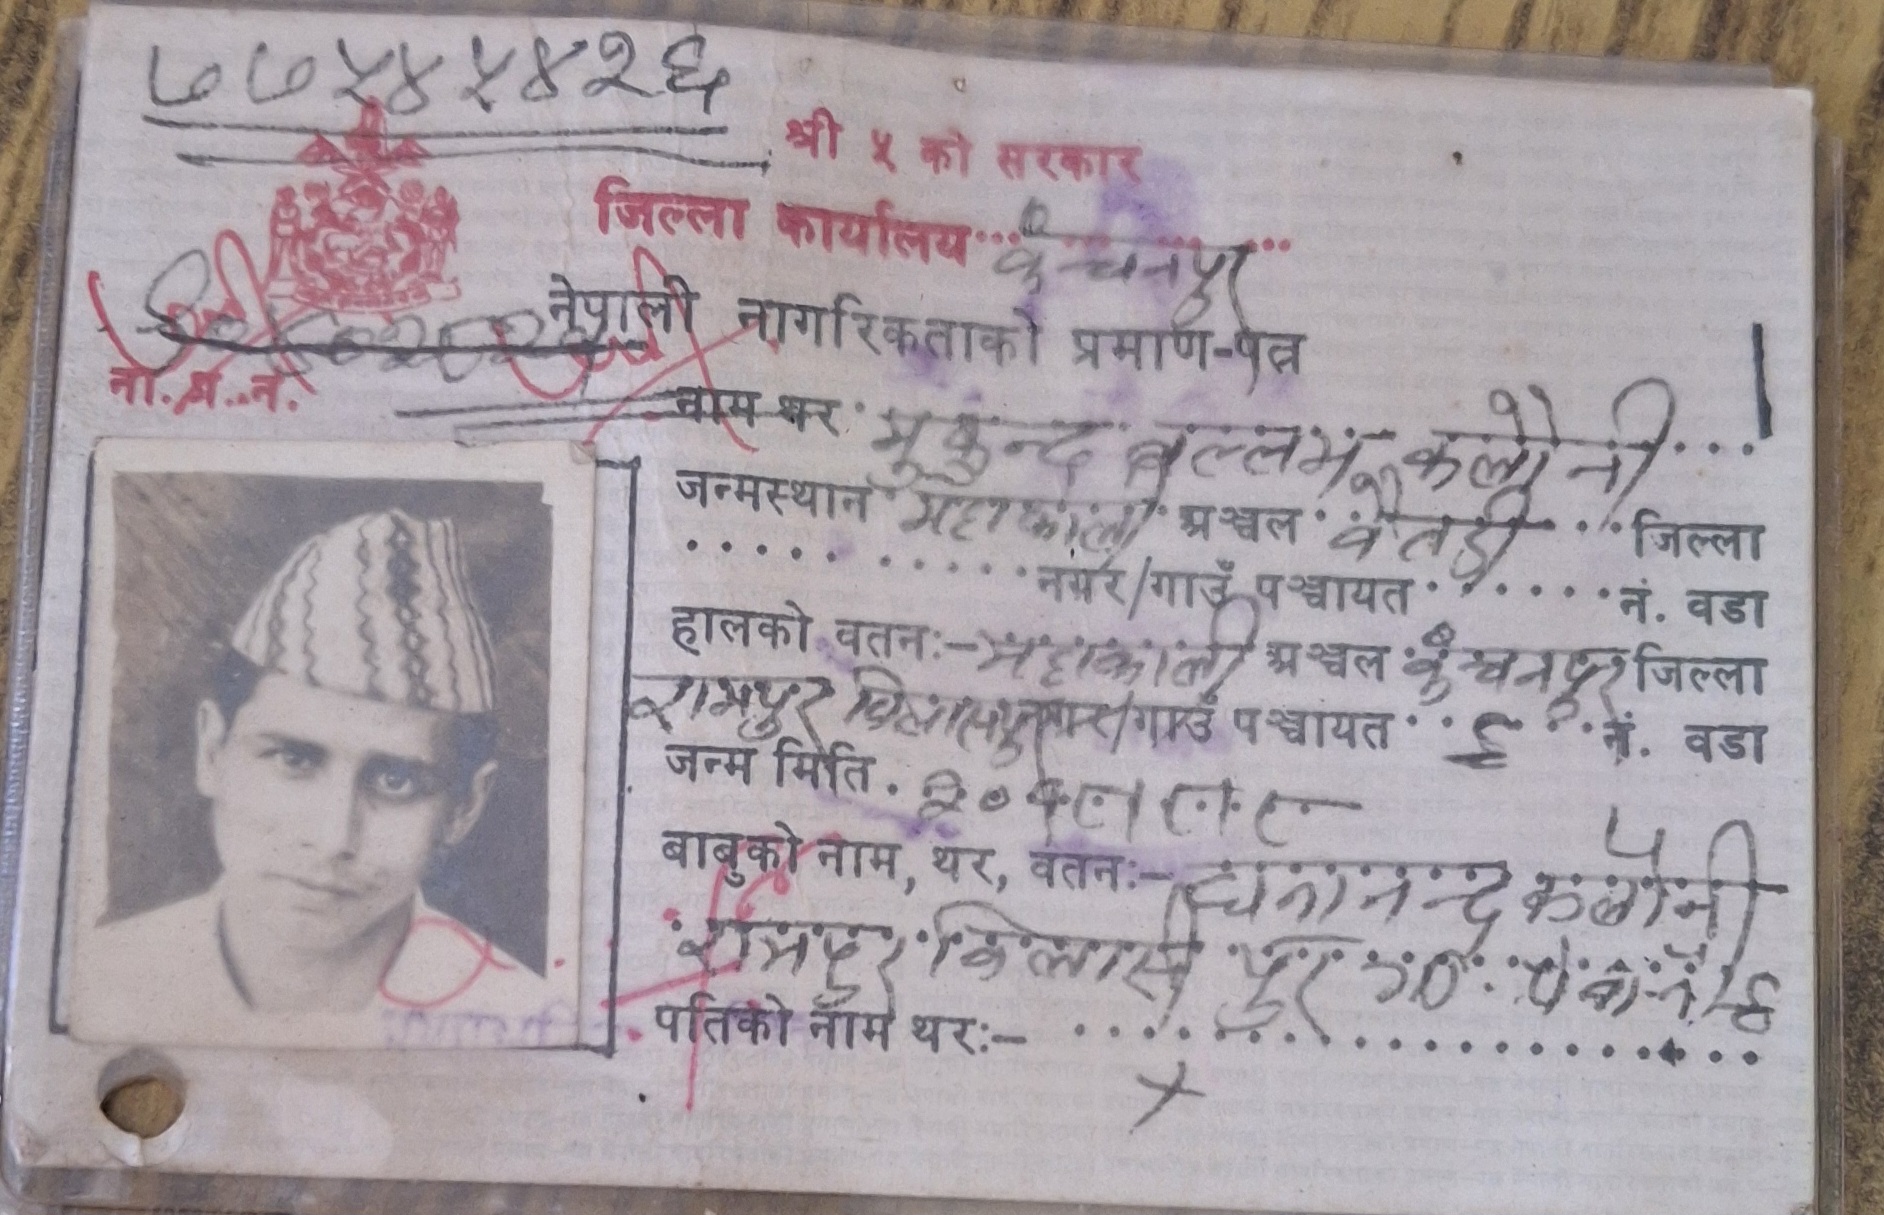 ७७५४५४२६
श्री ५ को सरकार
जिल्ला कार्यालय कञ्चनपुर
नेपाली नागरिकताको प्रमाण-पत्र
ना.प्र.नं.
नाम थर मुकुन्द बल्लभ कलौनी
जन्मस्थान महाकाली अञ्चल बैतडी जिल्ला
नगर/गाउँ पञ्चायत नं. वडा
हालको वतन:- महाकाली अञ्चल कञ्चनपुर जिल्ला
रामपुर विलासपुर नगर/गाउँ पञ्चायत ६ नं. वडा
जन्म मिति. २०
बाबुको नाम, थर, वतन:- कलौनी
रामपुर विलासीपुर गा. पं. वा. नं. ६
पतिको नाम थर:-
x